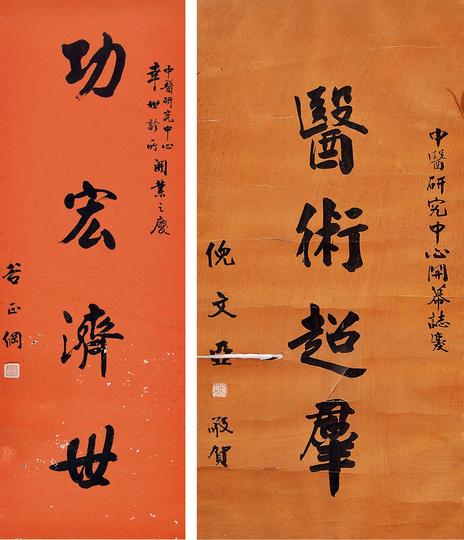 中醫研究中心
幸世診所開業之慶
功宏濟世
谷正綱
中醫研究中心開幕誌慶
醫術超羣
倪文亞
敬賀